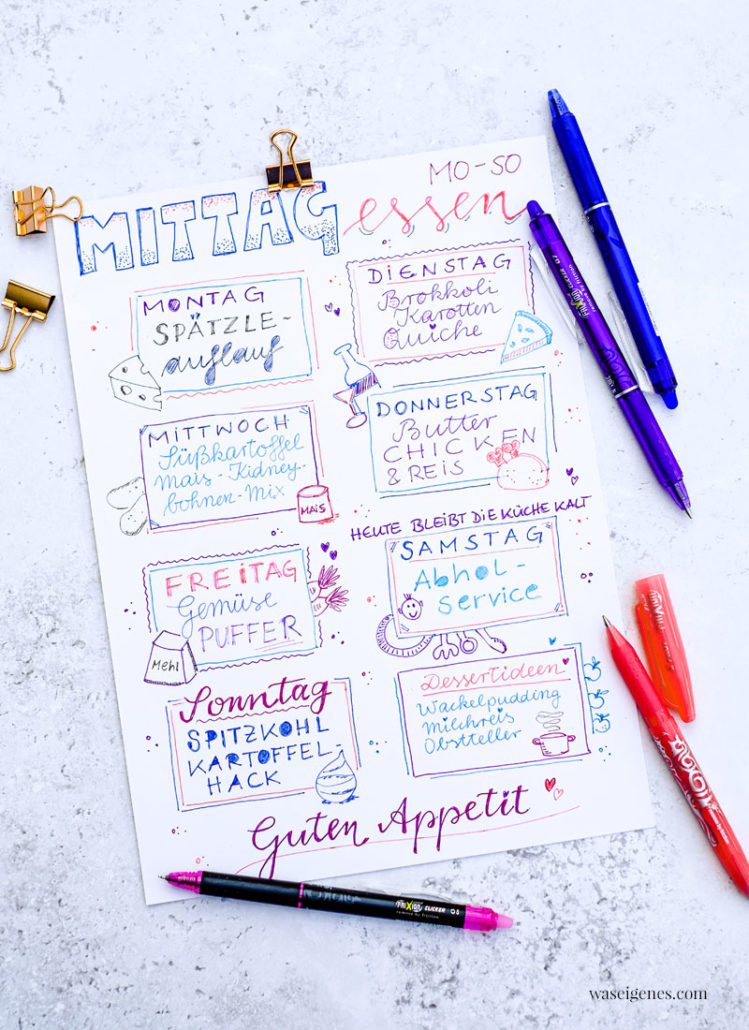 MO-SO
MITTAGessen
MONTAG
SPÄTZLE-
auflauf
DiENSTAG
Brokkoli
Karotten
Quiche
MITTWOCH
Süßkartoffel
Mais-Kidney-
bohnen-Mix
MAIS
DONNERSTAG
Butter
CHICKEN
& REIS
HEUTE BLEIBT DIE KÜCHE KALT
FREITAG
Gemüse
PUFFER
Mehl
SAMSTAG
Abhol-
service
Sonntag
SPITZKOHL
KARTOFFEL-
HACK
Dessertideen
Wackelpudding
Milchreis
Obstteller
Guten Appetit
FriXion CLICKER 07
FriXion CLICKER 08
FriXion
waseigenes.com